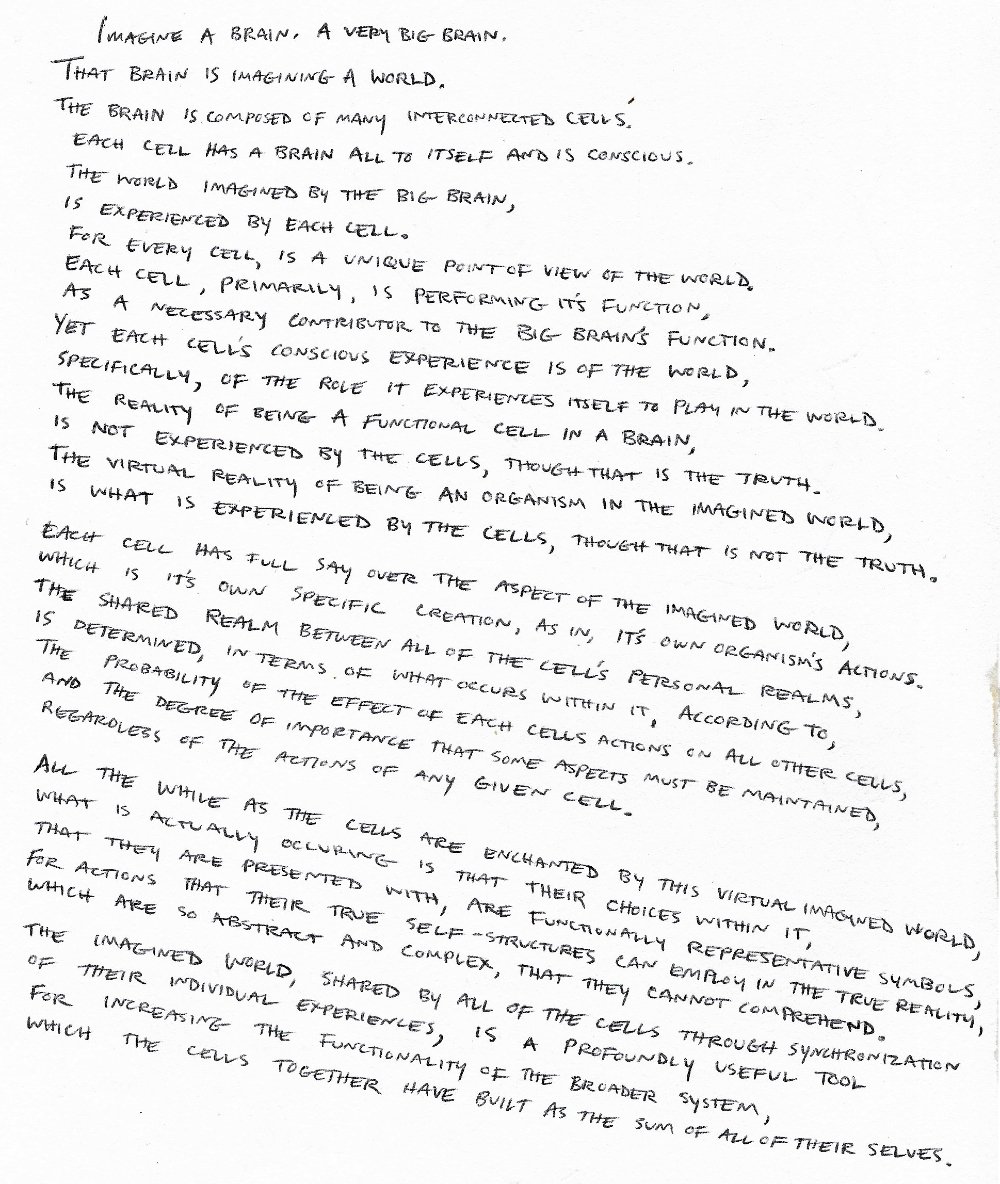 IMAGINE A BRAIN. A VERY BIG BRAIN.
THAT BRAIN IS IMAGINING A WORLD.
THE BRAIN IS COMPOSED OF MANY INTERCONNECTED CELLS.
EACH CELL HAS A BRAIN ALL TO ITSELF AND IS CONSCIOUS.
THE WORLD IMAGINED BY THE BIG BRAIN,
IS EXPERIENCED BY EACH CELL.
FOR EVERY CELL, IS A UNIQUE POINT OF VIEW OF THE WORLD.
EACH CELL, PRIMARILY, IS PERFORMING IT'S FUNCTION,
AS A NECESSARY CONTRIBUTOR TO THE BIG BRAIN'S FUNCTION.
YET EACH CELL'S CONSCIOUS EXPERIENCE IS OF THE WORLD,
SPECIFICALLY, OF THE ROLE IT EXPERIENCES ITSELF TO PLAY IN THE WORLD.
THE REALITY OF BEING A FUNCTIONAL CELL IN A BRAIN,
IS NOT EXPERIENCED BY THE CELLS, THOUGH THAT IS THE TRUTH.
THE VIRTUAL REALITY OF BEING AN ORGANISM IN THE IMAGINED WORLD,
IS WHAT IS EXPERIENCED BY THE CELLS, THOUGH THAT IS NOT THE TRUTH.
EACH CELL HAS FULL SAY OVER THE ASPECT OF THE IMAGINED WORLD,
WHICH IS IT'S OWN SPECIFIC CREATION, AS IN, IT'S OWN ORGANISM'S ACTIONS.
THE SHARED REALM BETWEEN ALL OF THE CELL'S PERSONAL REALMS,
IS DETERMINED, IN TERMS OF WHAT OCCURS WITHIN IT, ACCORDING TO,
THE PROBABILITY OF THE EFFECT OF EACH CELLS ACTIONS ON ALL OTHER CELLS,
AND THE DEGREE OF IMPORTANCE THAT SOME ASPECTS MUST BE MAINTAINED,
REGARDLESS OF THE ACTIONS OF ANY GIVEN CELL.
ALL THE WHILE AS THE CELLS ARE ENCHANTED BY THIS VIRTUAL IMAGINED WORLD,
WHAT IS ACTUALLY OCCURING IS THAT THEIR CHOICES WITHIN IT,
THAT THEY ARE PRESENTED WITH, ARE FUNCTIONALLY REPRESENTATIVE SYMBOLS,
FOR ACTIONS THAT THEIR TRUE SELF-STRUCTURES CAN EMPLOY IN THE TRUE REALITY,
WHICH ARE SO ABSTRACT AND COMPLEX, THAT THEY CANNOT COMPREHEND.
THE IMAGINED WORLD, SHARED BY ALL OF THE CELLS THROUGH SYNCHRONIZATION
OF THEIR INDIVIDUAL EXPERIENCES, IS A PROFOUNDLY USEFUL TOOL
FOR INCREASING THE FUNCTIONALITY OF THE BROADER SYSTEM,
WHICH THE CELLS TOGETHER HAVE BUILT AS THE SUM OF ALL OF THEIR SELVES.